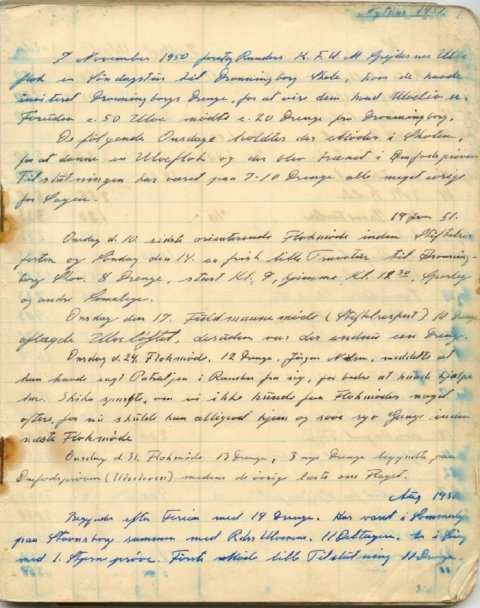 Nytaar 1951.
7 November 1950 foretog Randers K.F.U.M Spejdernes Ulve
flok en Søndagstur til Dronningborg Skole, hvor de havde
inviteret Dronningborgs Drenge, for at vise dem hvad Ulveliv er.
Foruden c. 50 Ulve mødte c. 20 Drenge fra Dronningborg.
De følgende Onsdage holdtes der Møder i Skolen,
for at danne en Ulveflok og der blev trænet i Ømfodsprøven
Tilslutningen har været paa 7-10 Drenge alle meget ivrige
for Sagen.
19 Jan 51.
Onsdag d. 10. sidste orienterende Flokmøde inden Stiftelses
festen og Søndag den 14. en frisk lille Travetur til Dronning-
borg Skov. 8 Drenge, start Kl. 9, hjemme Kl. 12 30, Sporleg
og andre Smaalege.
Onsdag den 17. Fuldmaanemøde (Stiftelsesfest) 10 Drenge
aflagde Ulveløftet, desuden var der endnu een Dreng.
Onsdag d. 24. Flokmøde, 12 Drenge. Jørgen Nielsen, meddelte at
han havde søgt Patruljen i Randers fra sig, for bedre at kunde hjælpe
her. Skike spurgte, om vi ikke kunde faa Flokmøder noget
oftere, for nu skulde han alligevel hjem og sove syv Gange inden
næste Flokmøde
Onsdag d. 31. Flokmøde 13 Drenge, 3 nye Drenge begyndte paa
Ømfodsprøven medens de øvrige lærte om Flaget.
Aug 1951.
Begynder efter Ferien med 19 Drenge. Har været i Sommerlejr
paa Stavnsborg sammen med Rdrs Ulvene. 11 Deltagere.
med 1. Stjerne prøve. lille Tilslutning 11 Drenge.